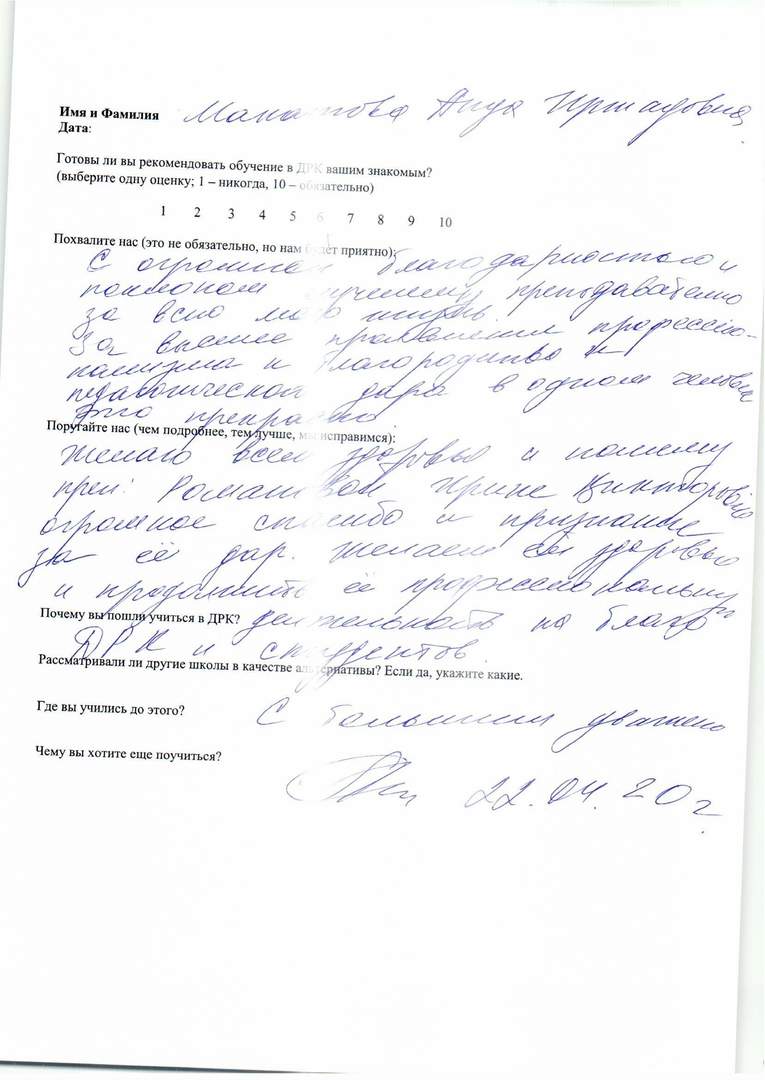 Имя и Фамилия
Дата:
Готовы ли вы рекомендовать обучение в ДРК вашим знакомым?
(выберите одну оценку; 1 – никогда, 10 – обязательно)
1 2 3 4 5 6 7 8 9 10
Похвалите нас (это не обязательно, но нам будет приятно):
С огромной благодарностью и
поклоном лучшему преподавателю
за всю мою жизнь.
За высшее проявление профессио-
нализма и благородства и
педагогической дара в одном человеке
Это прекрасно.
Поругайте нас (чем подробнее, тем лучше, мы исправимся):
Желаю всем здоровья и нашему
преп. Романовой Ирине Викторовне
огромное спасибо и признание
за её дар. Желаем ей здоровья
и продолжить её профессиональную
Почему вы пошли учиться в ДРК? деятельность на благо
ДРК и студентов.
Рассматривали ли другие школы в качестве альтернативы? Если да, укажите какие.
Где вы учились до этого? С большим уважением
Чему вы хотите еще поучиться?
22.04.20 г.